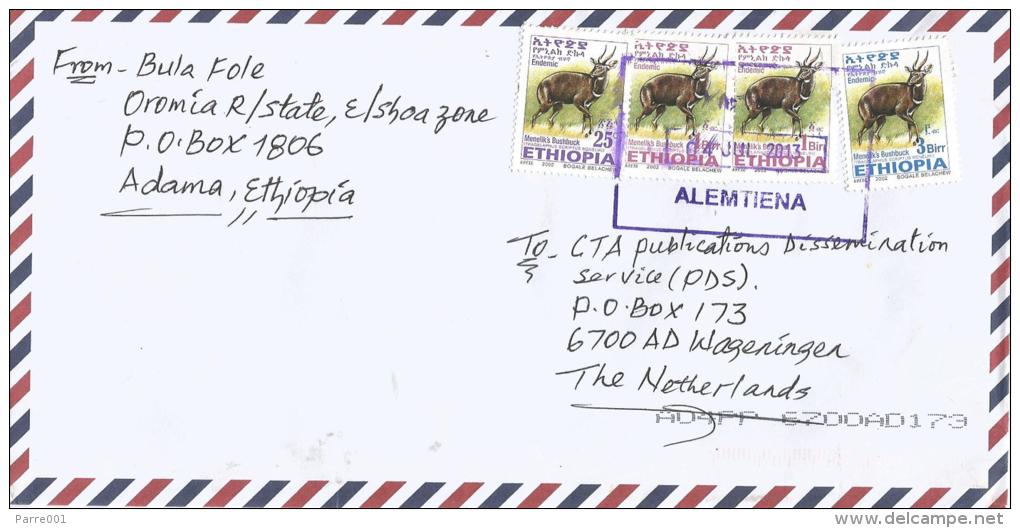 From - Bula Fole
Oromia R/state, E/shoa zone
P.O.BOX 1806
Adama, Ethiopia
ኢትዮጵያ
የምኒልክ ድኩላ
Endemic
25
Menelik's Bushbuck
ETHIOPIA
2002 BOGALE BELACHEW
ኢትዮጵያ
የምኒልክ ድኩላ
Endemic
Birr
Menelik's Bushbuck
ETHIOPIA
2002 BOGALE BELACHEW
ኢትዮጵያ
የምኒልክ ድኩላ
Endemic
1 Birr
Menelik's Bushbuck
ETHIOPIA
2002 BOGALE BELACHEW
ኢትዮጵያ
የምኒልክ ድኩላ
Endemic
3 Birr
Menelik's Bushbuck
ETHIOPIA
2002 BOGALE BELACHEW
04 JUL 2013
ALEMTIENA
To - CTA publications Dissemination
service (PDS).
P.O.BOX 173
6700 AD Wageningen
The Netherlands
6700AD173
Parre001
delcampe.net